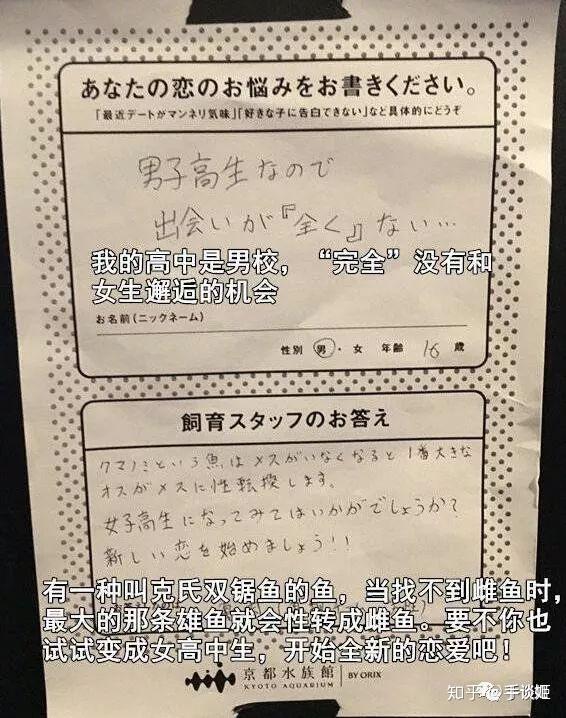 あなたの恋のお悩みをお書きください。
「最近デートがマンネリ気味」「好きな子に告白できない」など具体的にどうぞ
男子高生なので
出会いが『全く』ない…
我的高中是男校，“完全”没有和
女生邂逅的机会
お名前(ニックネーム)
性別 男・女 年齢 16 歳
飼育スタッフのお答え
クマノミという魚はメスがいなくなると1番大きな
オスがメスに性転換します。
女子高生になってみてはいかがでしょうか?
新しい恋を始めましょう!!
有一种叫克氏双锯鱼的鱼，当找不到雌鱼时，
最大的那条雄鱼就会性转成雌鱼。要不你也
试试变成女高中生，开始全新的恋爱吧！
京都水族館
KYOTO AQUARIUM
BY ORIX
知乎 手谈姬